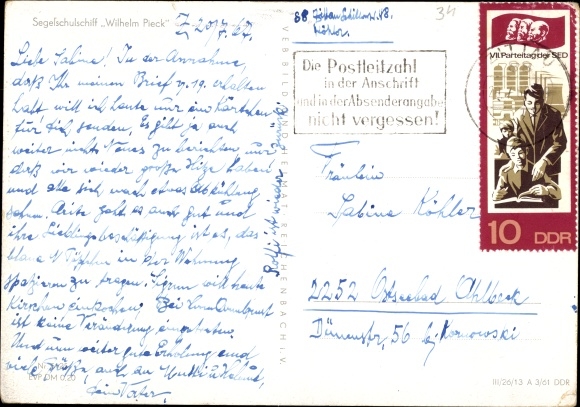 Segelschulschiff „Wilhelm Pieck"
20/7. 67.
Liebe Sabine! In der Annahme,
daß Ihr meinen Brief v. 19. erhalten
habt will ich heute nur ein Kärtchen
für Dich senden. Es gibt ja auch
weiter nichts Neues zu berichten nur
daß wir wieder große Hitze haben
und alle sich nach etwas Abkühlung
sehnen. geht es auch gut und
ihre Lieblingsbeschäftigung ist es, das
blaue Töpfchen in der Wohnung
spazieren zu tragen. will heute
Kirschen einkochen. Bei
ist keine Veränderung eingetreten.
Und nun weiter gute Erholung und
viele Grüße, auch an Mutti u. Helene,
Dein Vater.
ist wieder zurück
VERLAG BILD UND HEIMAT REICHENBACH I. V.
EVP DM 0,20
88
Köhler
34
Die Postleitzahl
in der Anschrift
und in der Absenderangabe
nicht vergessen!
VII. Parteitag der SED
10 DDR
Fräulein
Sabine Köhler
2252 Ostseebad Ahlbeck
Dünenstr. 56 bei Kornowski
III/26/13 A 3/61 DDR